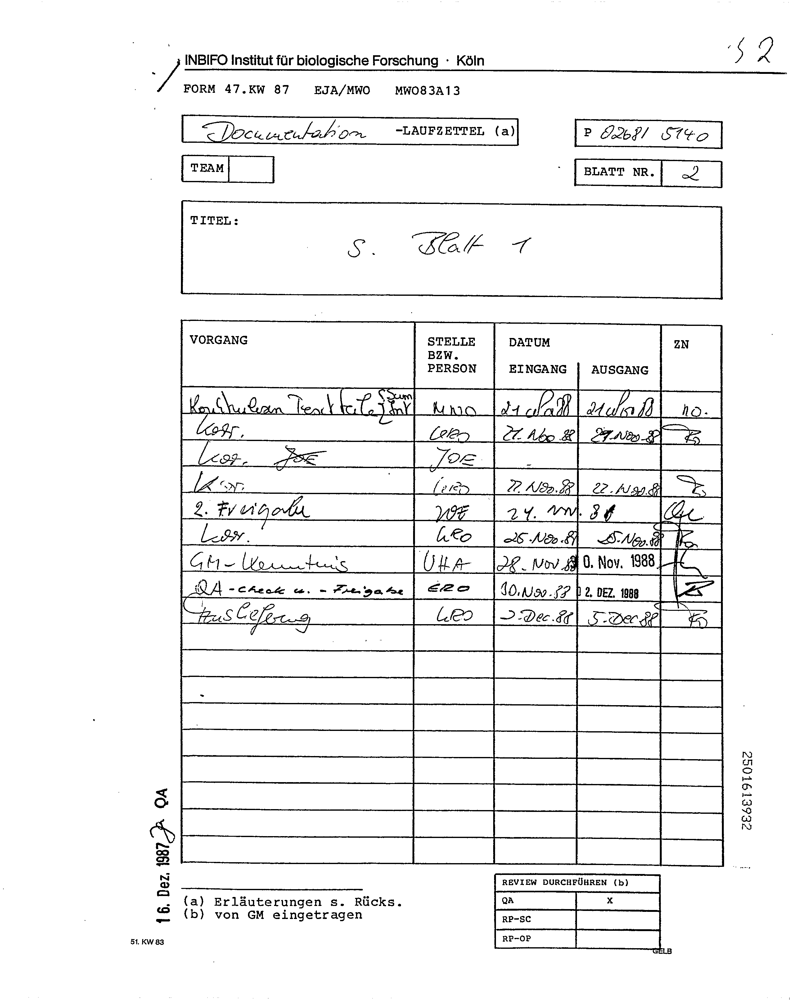 52
INBIFO Institut für biologische Forschung · Köln
FORM 47.KW 87 EJA/MWO MWO83A13
Documentation -LAUFZETTEL (a) P 02681 5140
TEAM BLATT NR. 2
TITEL:
s. Blatt 1
VORGANG STELLE BZW. PERSON DATUM EINGANG AUSGANG ZN
MWO no.
Korr. 29. Nov. 88
Kor. JOE JOE
Kor. 22. Nov. 88 22. Nov. 88
2. Freigabe WE 24.
Korr. ERO 25. Nov. 88 25. Nov. 88
GM-Kenntnis UHA 28. Nov 88 0. Nov. 1988
QA-check u. -Freigabe ERO 30. Nov. 88 2. DEZ. 1988
Auslieferung ERO 2. Dec. 88 5. Dec 88
2501613932
16. Dez. 1987 QA
(a) Erläuterungen s. Rücks.
(b) von GM eingetragen
REVIEW DURCHFÜHREN (b)
QA X
RP-SC
RP-OP
GELB
51. KW 83